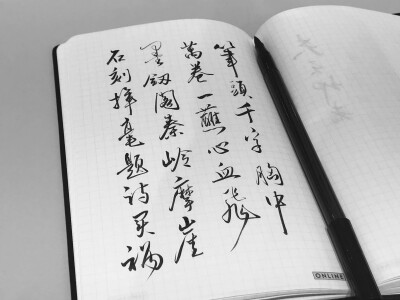 筆頭千字胸中
萬卷一蘸心血飛
墨釼閣秦岭摩崖
石刻揮毫題詩买祸
ONLINE